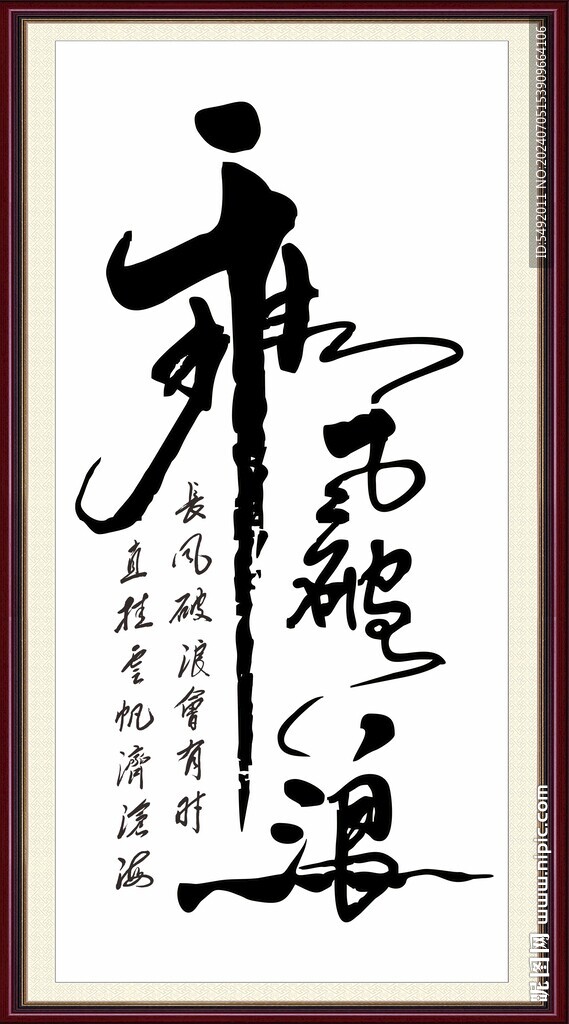 乘风破浪
長风破浪會有时
直挂雲帆濟滄海
ID:5492011 NO:20240705153909664106
昵图网 www.nipic.com